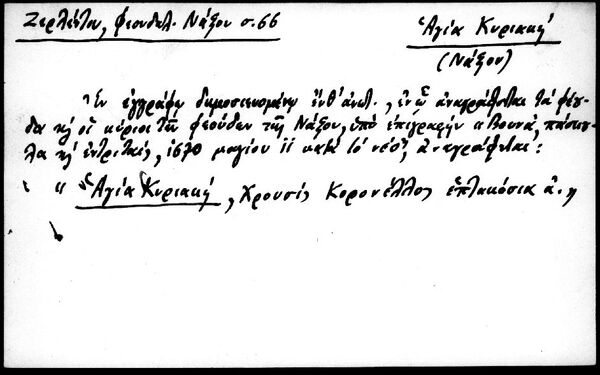 Ζερλέντου, φεουδαλ. Νάξου σ. 66
Ἁγία Κυριακή
(Νάξου)
Ἐν ἐγγράφῳ δημοσιευομένῳ ἔνθ' ἀνωτ., ἐν ᾧ ἀναγράφονται τὰ φέου-
δα κ' οἱ κύριοι τῶν φεούδων τῆς Νάξου, ὑπὸ ἐπιγραφὴν « Βουνά,
κ' ἐντριτίαις, 1670 μαγίου 11 κατὰ τὸ νέο», ἀναγράφεται:
« Ἁγία Κυριακή, Χρουσῆς Κορονέλλος ἑπτακόσια ἀ. »